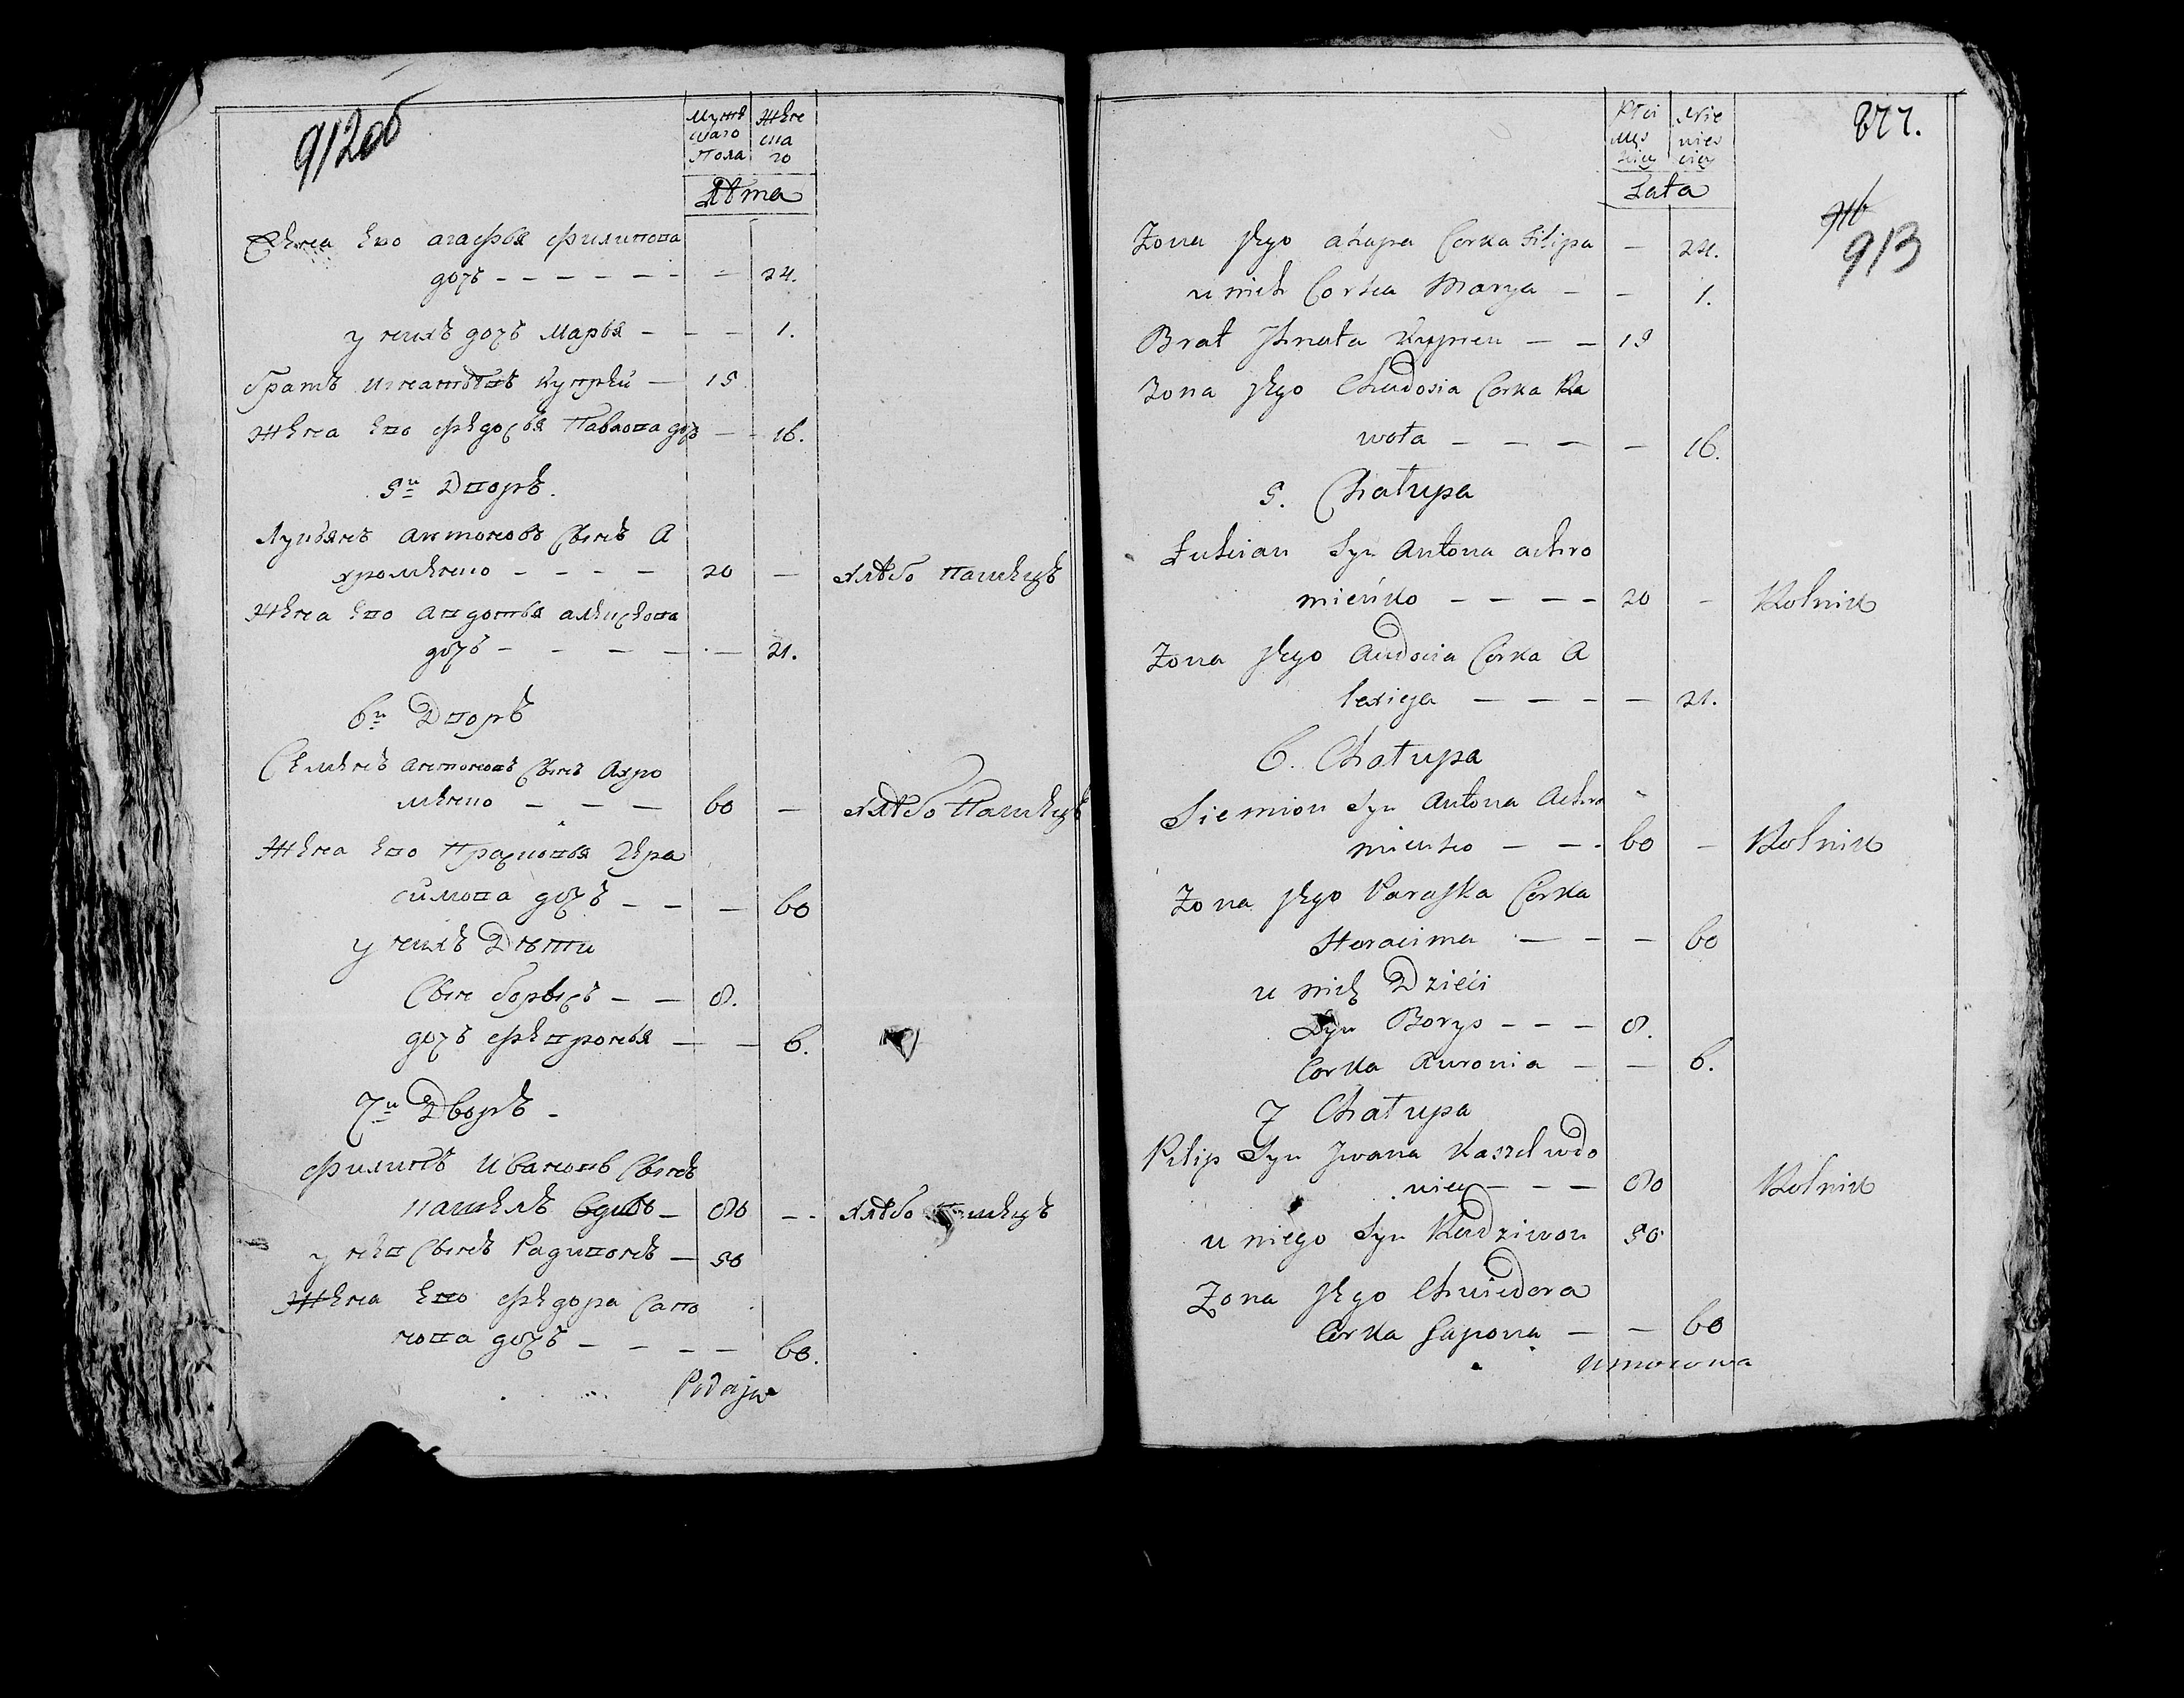 912об
Мужескаго Пола
Женскаго
Лѣта
Жена Его агафья филипова
дочь - - - - - - - 24.
у нихъ дочь Марья - - - 1.
братъ игнатовъ Купрей - 19
Жена Его федосья Павлова дочь - - 16.
5й Дворъ.
Лукьянъ антоновъ Сынъ А
хроменко - - - - 20 - хлѣбопашецъ
Жена Его авдотья алексеева
дочь - - - - - - 21.
6й Дворъ
Семенъ антоновъ Сынъ Ахро
менко - - - 60 - хлѣбопашецъ
Жена Его Прасковья Гера
симова дочь - - - 60
у нихъ Дѣти
Сынъ борисъ - - 8.
дочь февронья - - 6.
7й Дворъ -
филипъ Ивановъ Сынъ
- 80 - - хлѣбопашецъ
у нево Сынъ Радивонъ - 50
Жена Ево федора Сапо
нова дочь - - - - 60.
Podaje
Płci Męzkiey
Niewiesciey
877.
Lata
913
Zona Jego ahapa Corka Filipa - 24.
u nich Corka Marya - - 1.
Brat Jhnata Kuprien - - 19
Zona Jego Chwdosia Corka Pa
woła - - - - 16.
5. Chałupa
Łukian Syn Antona achro
mieńko - - - - 20 - Rolnik
Zona Jego Audocia Córka A
lexieja - - - - 21.
6. Chałupa
Siemion Syn Antona Achro
mienko - - - 60 - Rolnik
Zona Jego Paraska Córka
Haracima - - - 60
u nich Dzieći
Syn Borys - - - 8.
Corka Auronia - - 6.
7 Chałupa
Pilip Syn Jwana
- - - 80 Rolnik
u niego Syn Radziwon 50
Zona Jego Chwiedora
Corka Sapona - - 60